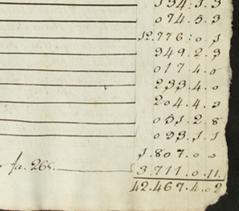 134:1.3
074.5.3
12.776:0.1
349.2.3
017.4.0
233.4.0
204.4.0
031.2.8
093.1.1
1.807.0.0
fa. 265. 3.711.0.11
42.467.4.02